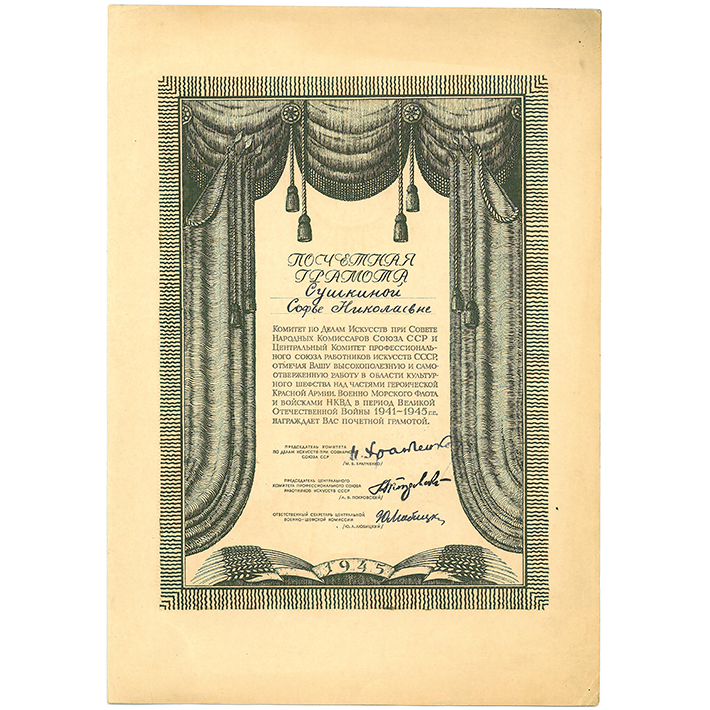 ПОЧЕТНАЯ
ГРАМОТА
Сушкиной
Софье Николаевне
Комитет по Делам Искусств при Совете
Народных Комиссаров Союза ССР и
Центральный Комитет профессиональ-
ного союза работников искусств СССР,
отмечая Вашу высокополезную и само-
отверженную работу в области культур-
ного шефства над частями героической
Красной Армии, Военно Морского Флота
и войсками НКВД в период Великой
Отечественной Войны 1941–1945 г.г.
награждает Вас почетной грамотой.
ПРЕДСЕДАТЕЛЬ КОМИТЕТА
ПО ДЕЛАМ ИСКУССТВ ПРИ СОВНАРКОМЕ
СОЮЗА ССР
/М. Б. ХРАПЧЕНКО/
ПРЕДСЕДАТЕЛЬ ЦЕНТРАЛЬНОГО
КОМИТЕТА ПРОФЕССИОНАЛЬНОГО СОЮЗА
РАБОТНИКОВ ИСКУССТВ СССР
/А. В. ПОКРОВСКИЙ/
ОТВЕТСТВЕННЫЙ СЕКРЕТАРЬ ЦЕНТРАЛЬНОЙ
ВОЕННО-ШЕФСКОЙ КОМИССИИ
/Ю. А. ЛЮБИЦКИЙ/
1945